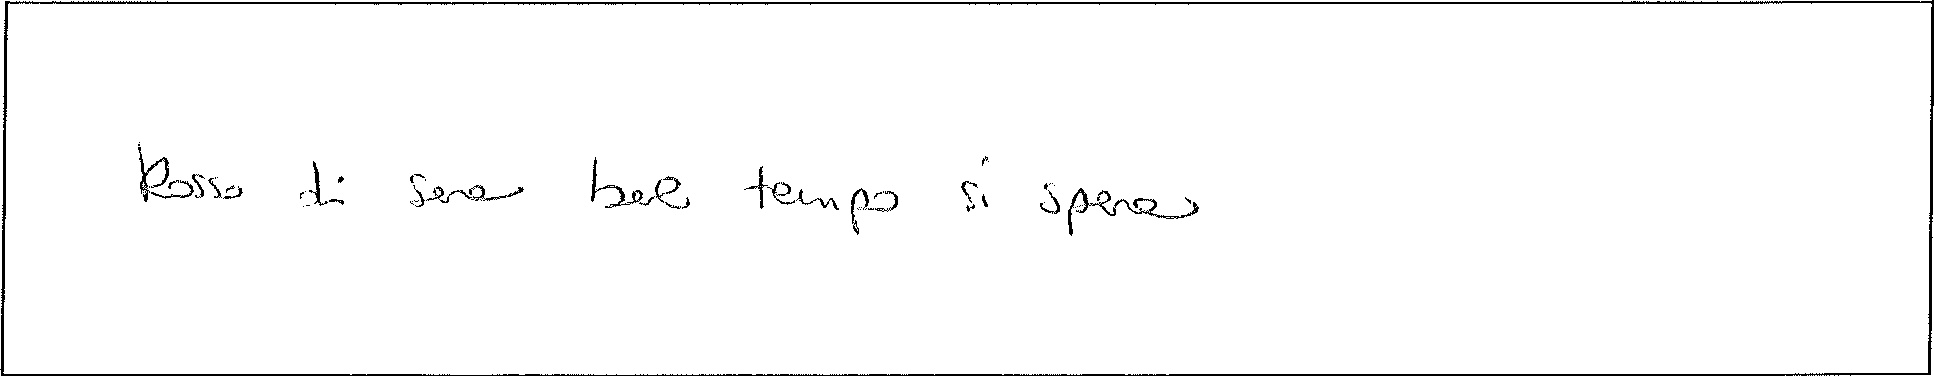 Rosso di sera bel tempo si spera